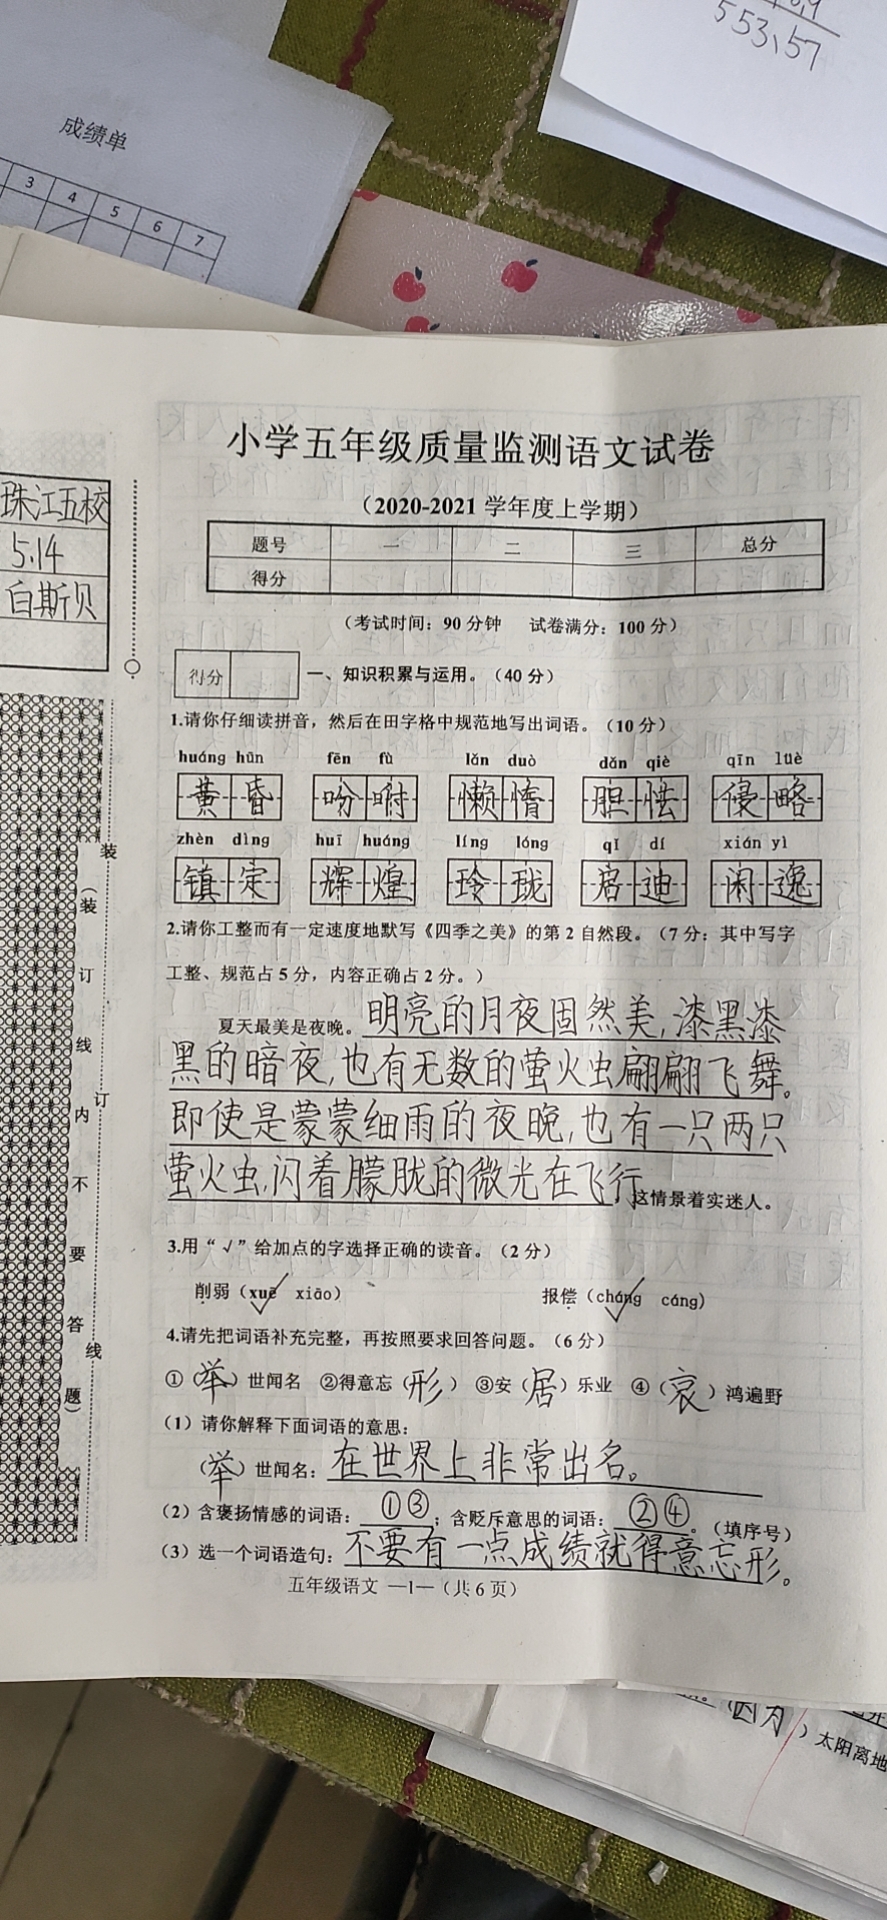 553.57
成绩单
3 4 5 6 7
小学五年级质量监测语文试卷
（2020-2021 学年度上学期）
珠江五校
5.14
白斯贝
题号 一 二 三 总分
得分
（考试时间：90 分钟 试卷满分：100 分）
得分
一、知识积累与运用。（40 分）
1.请你仔细读拼音，然后在田字格中规范地写出词语。（10 分）
huáng hūn fēn fù lǎn duò dǎn qiè qīn lüè
黄昏 吩咐 懒惰 胆怯 侵略
zhèn dìng huī huáng líng lóng qǐ dí xián yì
镇定 辉煌 玲珑 启迪 闲逸
2.请你工整而有一定速度地默写《四季之美》的第 2 自然段。（7 分；其中写字
工整、规范占 5 分，内容正确占 2 分。）
夏天最美是夜晚。明亮的月夜固然美,漆黑漆
黑的暗夜,也有无数的萤火虫翩翩飞舞。
即使是蒙蒙细雨的夜晚,也有一只两只
萤火虫,闪着朦胧的微光在飞行,这情景着实迷人。
3.用“√”给加点的字选择正确的读音。（2 分）
削弱（xuē√ xiāo） 报偿（cháng√ cáng）
4.请先把词语补充完整，再按照要求回答问题。（6 分）
①（举）世闻名 ②得意忘（形） ③安（居）乐业 ④（哀）鸿遍野
（1）请你解释下面词语的意思：
（举）世闻名：在世界上非常出名。
（2）含褒扬情感的词语：①③；含贬斥意思的词语：②④。（填序号）
（3）选一个词语造句：不要有一点成绩就得意忘形。
五年级语文 —1—（共 6 页）
装
（装订线内不要答题）
订
线
（因为）太阳离地